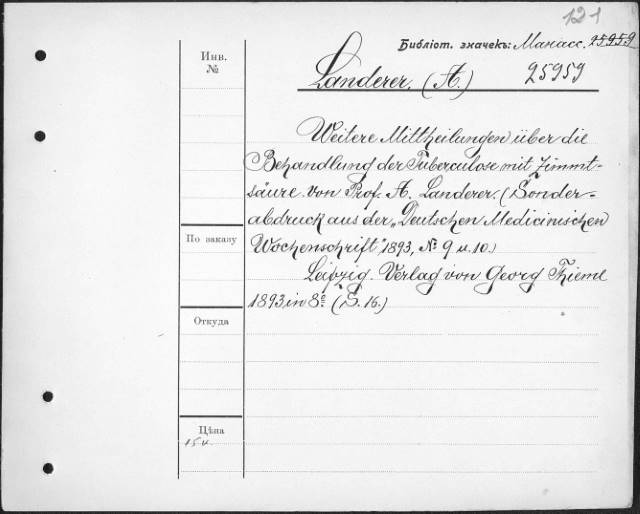 121
Библіот. значекъ: Манасс. 25959
Инв.
№
Landerer. (A.) 25959
Weitere Mittheilungen über die
Behandlung der Tuberculose mit Zimmt-
säure von Prof. A. Landerer. (Sonder-
abdruck aus der „Deutschen Medicinischen
Wochenschrift", 1893, № 9 u. 10.)
По заказу
Leipzig. Verlag von Georg Thieme
1893, in 8º. (S. 16.)
Откуда
Цѣна
15 к.